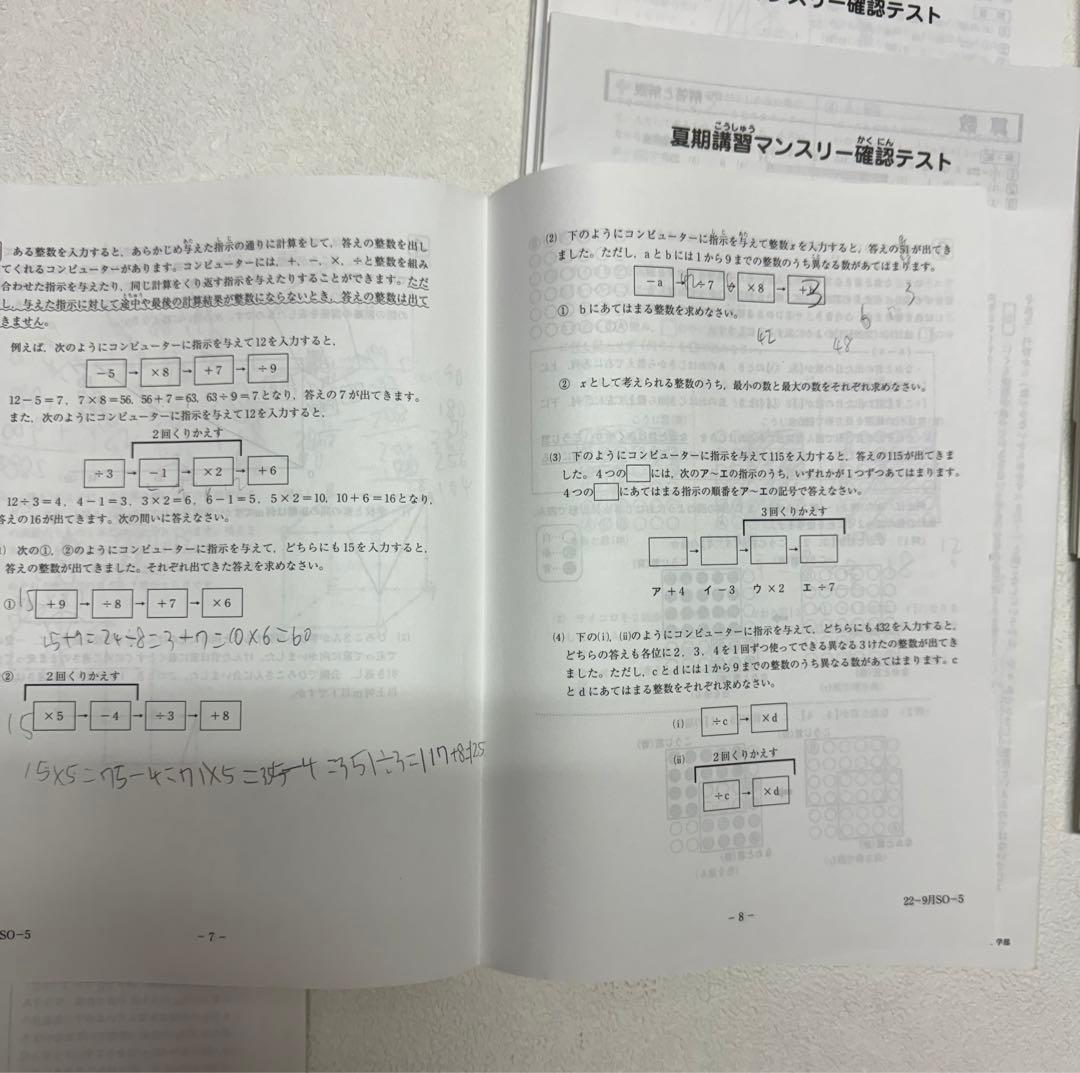 ンスリー確認テスト
算数
解答と解説
こうしゅう かくにん
夏期講習マンスリー確認テスト
ある整数を入力すると，あらかじめ与えた指示の通りに計算をして，答えの整数を出し
てくれるコンピューターがあります。コンピューターには，＋，－，×，÷と整数を組み
合わせた指示を与えたり，同じ計算をくり返す指示を与えたりすることができます。ただ
し，与えた指示に対して途中や最後の計算結果が整数にならないとき，答えの整数は出て
きません。
例えば，次のようにコンピューターに指示を与えて12を入力すると，
－5 → ×8 → ＋7 → ÷9
12－5＝7，7×8＝56，56＋7＝63，63÷9＝7となり，答えの7が出てきます。
また，次のようにコンピューターに指示を与えて12を入力すると，
2回くりかえす
÷3 → －1 → ×2 → ＋6
12÷3＝4，4－1＝3，3×2＝6，6－1＝5，5×2＝10，10＋6＝16となり，
答えの16が出てきます。次の問いに答えなさい。
次の①，②のようにコンピューターに指示を与えて，どちらにも15を入力すると，
答えの整数が出てきました。それぞれ出てきた答えを求めなさい。
① 15 ＋9 → ÷8 → ＋7 → ×6
15+9=24÷8=3+7=10×6=60
② 2回くりかえす
15 ×5 → －4 → ÷3 → ＋8
15×5=75-4=71×5=355-4=351÷3=117+8=125
SO－5
－7－
(2) 下のようにコンピューターに指示を与えて整数xを入力すると，答えの51が出てき
ました。ただし，aとbには1から9までの整数のうち異なる数があてはまります。
－a → ÷7 → ×8 → ＋b
① bにあてはまる整数を求めなさい。
3
6
42 48
② xとして考えられる整数のうち，最小の数と最大の数をそれぞれ求めなさい。
(3) 下のようにコンピューターに指示を与えて115を入力すると，答えの115が出てきま
した。4つの□には，次のア～エの指示のうち，いずれかが1つずつあてはまります。
4つの□にあてはまる指示の順番をア～エの記号で答えなさい。
3回くりかえす
□ → □ → □ → □
ア ＋4 イ －3 ウ ×2 エ ÷7
(4) 下の(i)，(ii)のようにコンピューターに指示を与えて，どちらにも432を入力すると，
どちらの答えも各位に2，3，4を1回ずつ使ってできる異なる3けたの整数が出てき
ました。ただし，cとdには1から9までの整数のうち異なる数があてはまります。c
とdにあてはまる整数をそれぞれ求めなさい。
(i) ÷c → ×d
(ii) 2回くりかえす
÷c → ×d
22－9月SO－5
－8－
学部